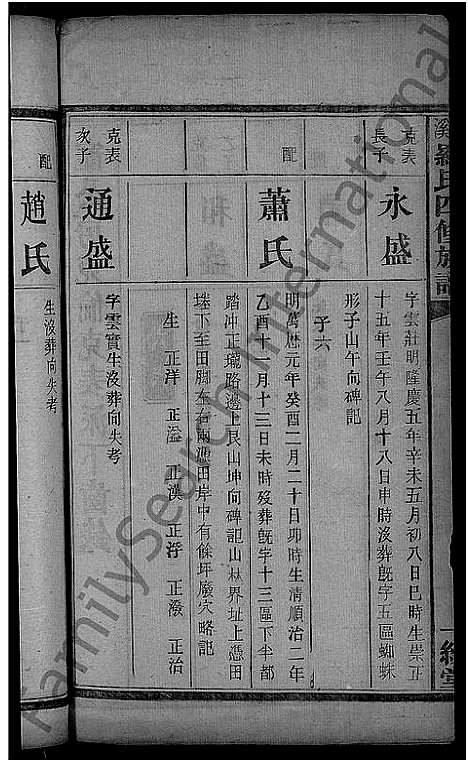 溪羅氏四修族譜
克表
長子
永盛
字雲莊明隆慶五年辛未五月初八日巳時生崇正
十五年壬午八月十八日申時沒葬旣字五區蜘蛛
形子山午向碑記
子六
配
蕭氏
明萬歷元年癸酉二月二十日卯時生清順治二年
乙酉十一月十三日未時歿葬旣字十三區下半都
踏冲正瓏路邊上艮山坤向碑記山林界址上憑田
墈下至田脚左右兩憑田岸中有餘坪廢穴略記
生 正洋 正溢 正漢 正浮 正潑 正治
克表
次子
通盛
字雲實生沒葬向失考
配
趙氏
生沒葬向失考
FamilySearch International